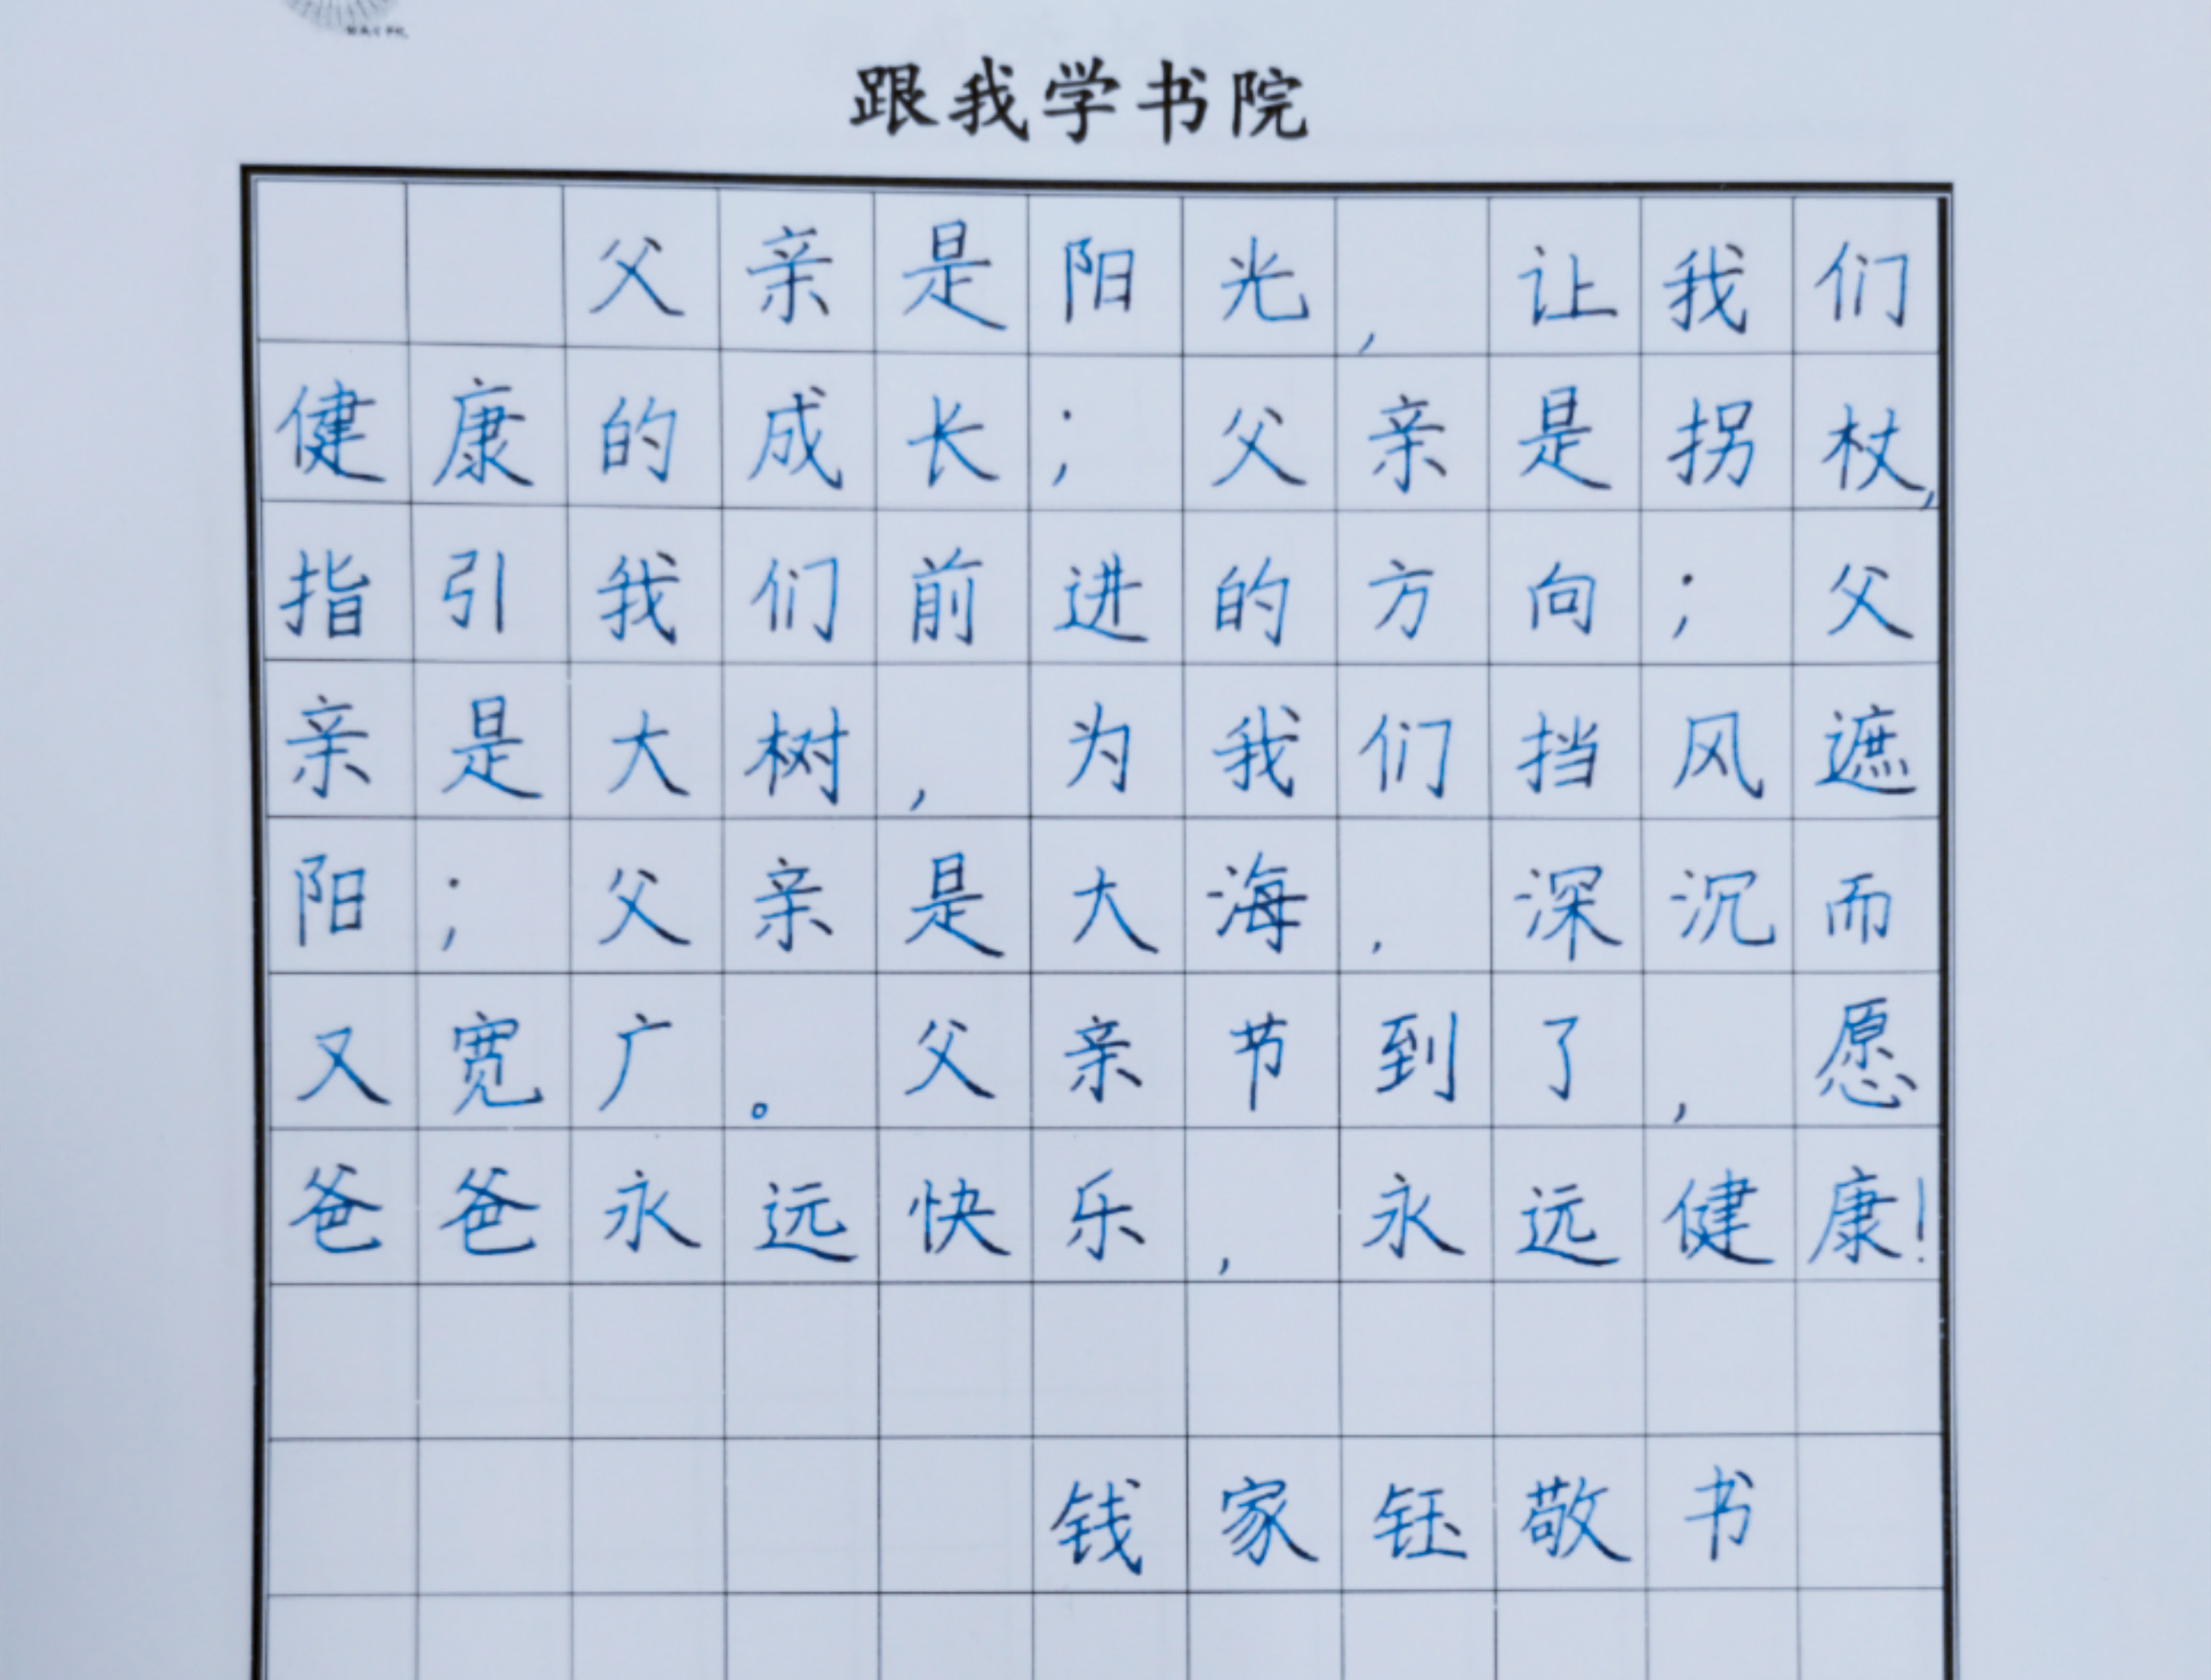 跟我学书院
父亲是阳光,让我们
健康的成长;父亲是拐杖,
指引我们前进的方向;父
亲是大树,为我们挡风遮
阳;父亲是大海,深沉而
又宽广。父亲节到了,愿
爸爸永远快乐,永远健康!
钱家钰敬书